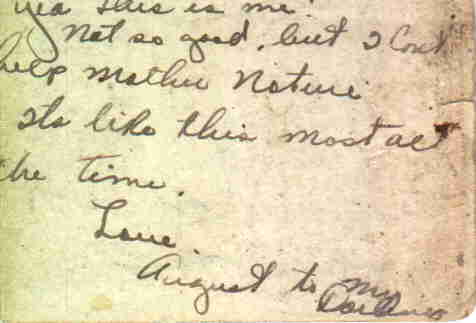 yea this is me.
Not so good, but I Can't
help mother Nature
Its like this most all
the time.
Love.
August to my
Darling